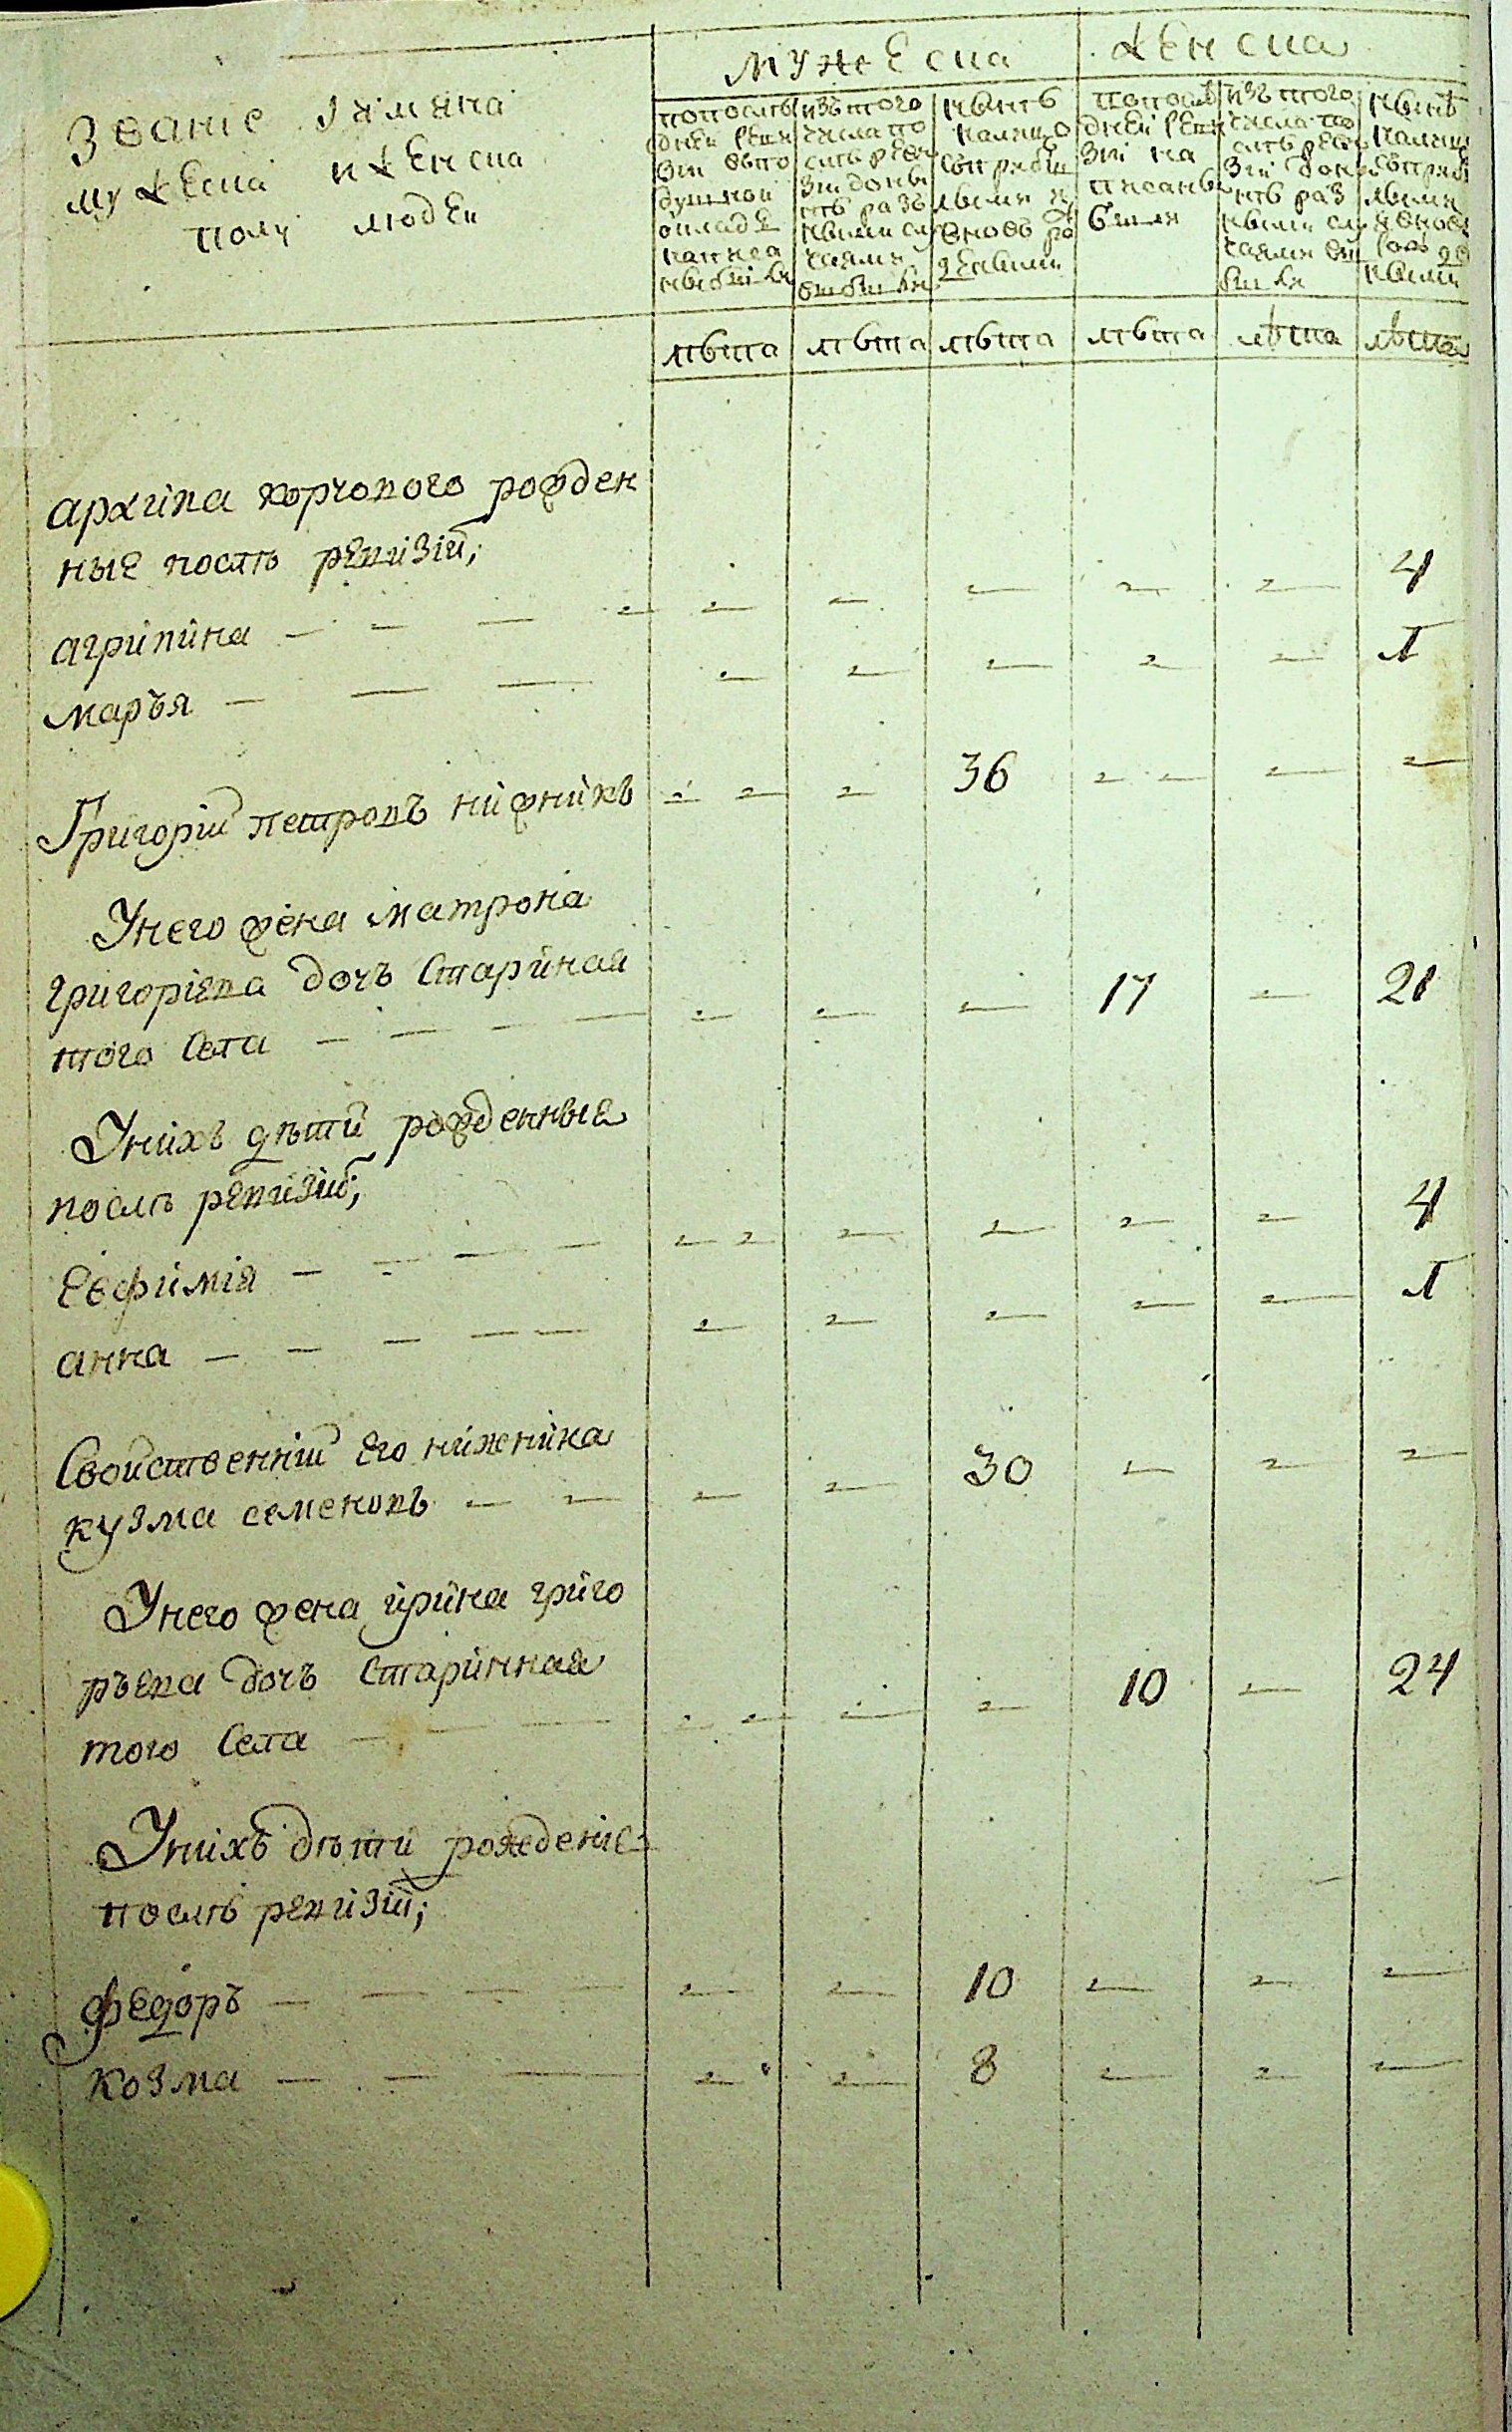 Званіе Iимяна
мужеска иженска
полу людеи
мужеска
женска
попослѣ
дней реви
зіи въпо
душной
окладѣ
написа
ныбыли
изътого
числапо
слѣ реви
зіи доны
нѣ разъ
ными слу
чаями
выбыли
нынѣ
налицо
сприбы
лыми и
вновь ро
ждеными
попослѣ
дней реви
зіи на
писаны
были
изътого
числа по
слѣ реви
зіи доны
нѣ раз
ными слу
чаями вы
были
нынѣ
налицо
сприбы
лыми
ивновь
лѣта лѣта лѣта лѣта лѣта лѣта
архипа корчового рожден
ные послѣ ревизіи;
агрипина 4
марья 1
Григоріи петровъ нижникъ 36
Унего жена матрона
григоріева дочь старйная
того села 17 21
Унихъ дѣти рожденные
послѣ ревизіи;
Евфимія 4
анна 1
Свойственніи его нижника
кузма семеновъ 30
Унего жена ирина григо
рьева дочь старинная
того села 10 24
Унихъ дѣти рожденіе
послѣ ревизіи;
федоръ 10
козма 8